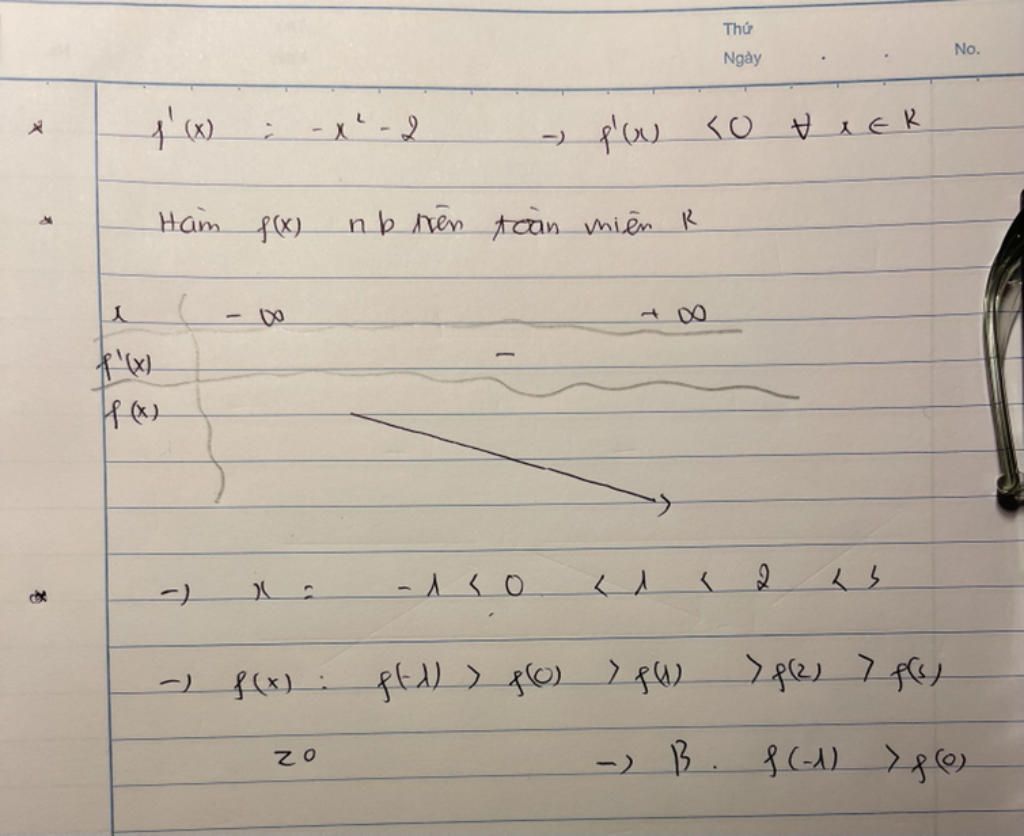 Thứ
Ngày . . No.
* f'(x) = -x² - 2 → f'(x) < 0 ∀ x ∈ R
* Hàm f(x) nb trên toàn miền R
x -∞ +∞
f'(x) -
f(x)
* → x = -1 < 0 < 1 < 2 < 3
→ f(x) : f(-1) > f(0) > f(1) > f(2) > f(3)
20 → B. f(-1) > f(0)